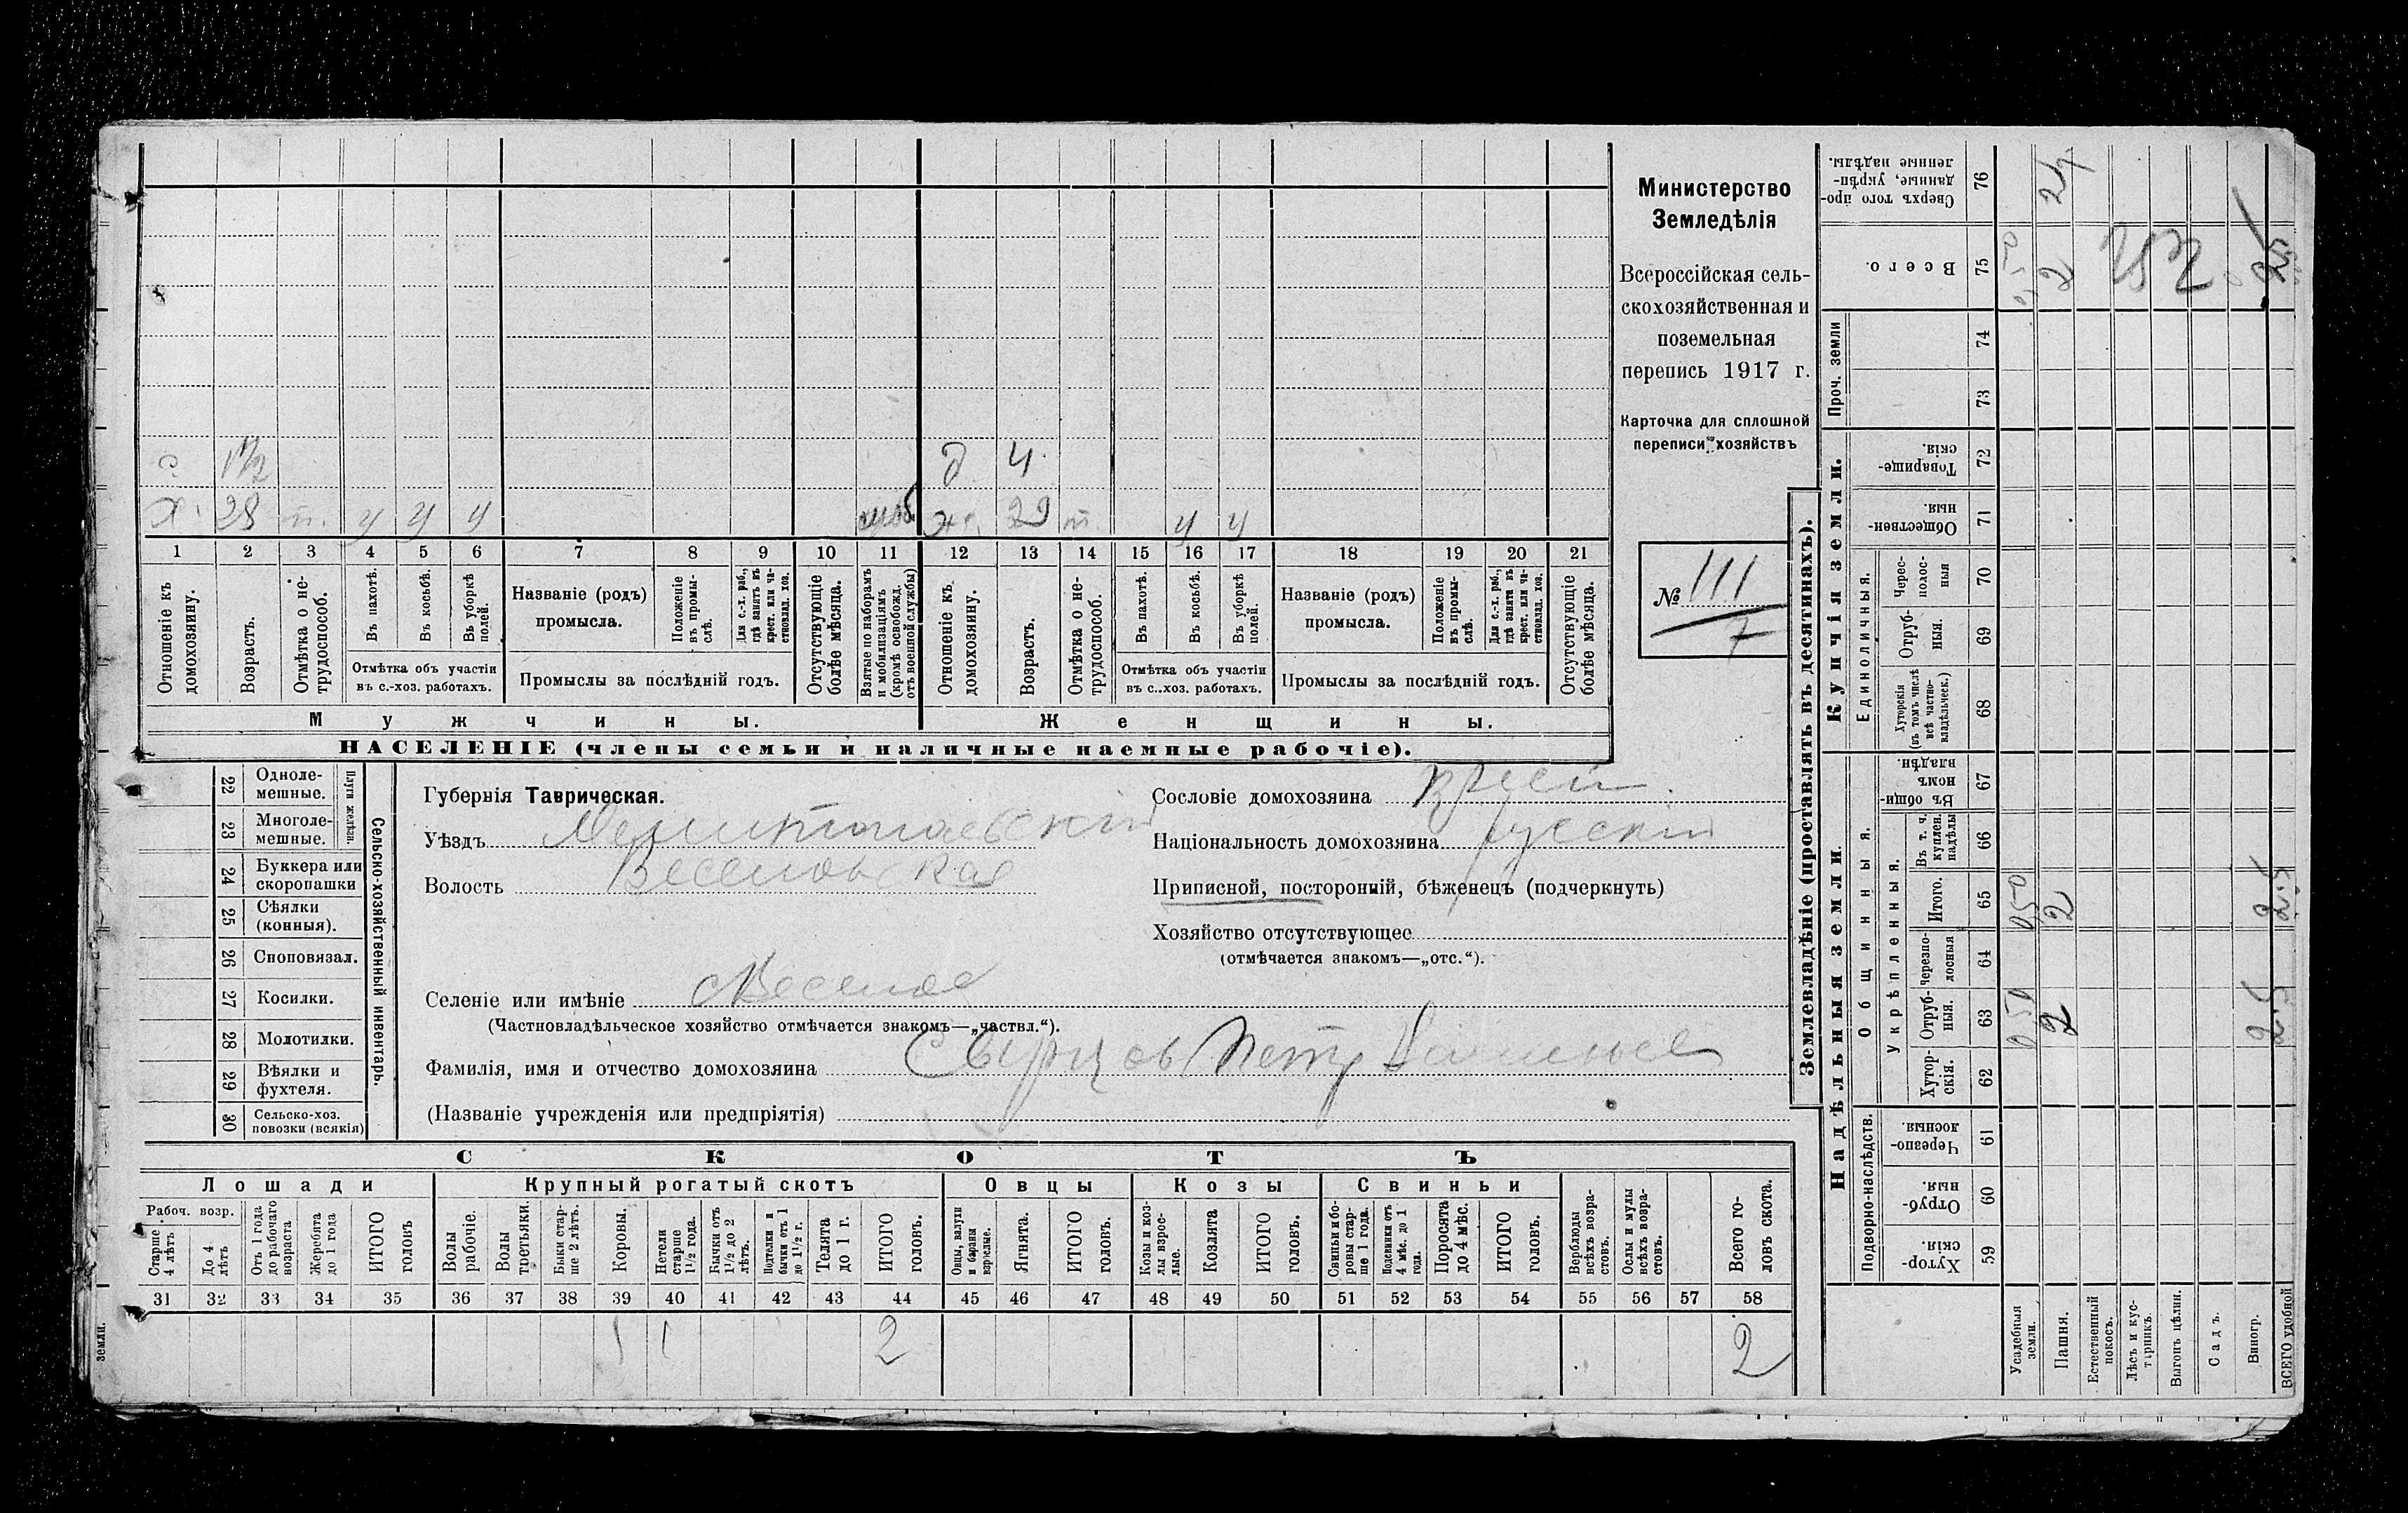 с. 1 1/2 д 4
х. 28 т. у у у моб. ж. 29 т. у у
1 2 3 4 5 6 7 8 9 10 11 12 13 14 15 16 17 18 19 20 21
Отношеніе къ домохозяину.
Возрастъ.
Отмѣтка о не-трудоспособ.
Въ пахотѣ.
Въ косьбѣ.
Въ уборкѣ полей.
Отмѣтка объ участіи
въ с.-хоз. работахъ.
Названіе (родъ)
промысла.
Положеніе въ промы-слѣ.
Для с.-х. раб., гдѣ занятъ въ крест. или ча-стновлад. хоз.
Промыслы за послѣдній годъ.
Отсутствующіе болѣе мѣсяца.
Взятые по наборамъ и мобилизаціямъ (кромѣ освобожд. отъ военной службы)
Отношеніе къ домохозяину.
Возрастъ.
Отмѣтка о не-трудоспособ.
Въ пахотѣ.
Въ косьбѣ.
Въ уборкѣ полей.
Отмѣтка объ участіи
въ с..хоз. работахъ.
Названіе (родъ)
промысла.
Положеніе въ промы-слѣ.
Для с.-х. раб., гдѣ занята въ крест. или ча-стновлад. хоз.
Промыслы за послѣдній годъ.
Отсутствующіе болѣе мѣсяца.
Мужчины.
Женщины.
НАСЕЛЕНІЕ (члены семьи и наличные наемные рабочіе).
Министерство
Земледѣлія
Всероссійская сель-
скохозяйственная и
поземельная
перепись 1917 г.
Карточка для сплошной
переписи хозяйствъ
№ 111
7
22 Одноле-
мешные.
23 Многоле-
мешные.
Плуги желѣзн.
24 Буккера или
скоропашки
25 Сѣялки
(конныя).
26 Сноповязал.
27 Косилки.
28 Молотилки.
29 Вѣялки и
фухтеля.
30 Сельско-хоз.
повозки (всякія)
Сельско-хозяйственный инвентарь.
Губернія Таврическая.
Уѣздъ Мелитопольскій
Волость Веселовская
Селеніе или имѣніе с Веселое
(Частновладѣльческое хозяйство отмѣчается знакомъ—„частвл.“).
Фамилія, имя и отчество домохозяина Свирцов Петр
(Названіе учрежденія или предпріятія)
Сословіе домохозяина
Національность домохозяина русскій
Приписной, посторонній, бѣженецъ (подчеркнуть)
Хозяйство отсутствующее
(отмѣчается знакомъ—„отс.“).
СКОТЪ
Лошади
Крупный рогатый скотъ
Овцы
Козы
Свиньи
Рабоч. возр.
Старше 4 лѣтъ
До 4 лѣтъ
Отъ 1 года до рабочаго возраста
Жеребята до 1 года
ИТОГО головъ
Волы рабочіе.
Волы третьяки.
Быки стар-ше 2 лѣтъ.
Коровы.
Нетели старше 1½ года.
Бычки отъ 1½ до 2 лѣтъ.
Подтелки и бычки отъ 1 до 1½ г.
Телята до 1 г.
ИТОГО головъ.
Овцы, валухи и бараны взрослые.
Ягнята.
ИТОГО головъ.
Козы и коз-лы взрос-лые.
Козлята
ИТОГО головъ.
Свиньи и бо-ровы стар-ше 1 года.
Подсвинки отъ 4 мѣс. до 1 года.
Поросята до 4 мѣс.
ИТОГО головъ.
Верблюды всѣхъ возра-стовъ.
Ослы и мулы всѣхъ возра-стовъ.
Всего го-ловъ скота.
31 32 33 34 35 36 37 38 39 40 41 42 43 44 45 46 47 48 49 50 51 52 53 54 55 56 57 58
1 1 2 2
земли.
Землевладѣніе (проставлять въ десятинахъ).
Надѣльныя земли.
Купчія земли.
Проч. земли
Подворно-наслѣдств.
Общинныя.
Укрѣпленныя.
Единоличныя.
Хутор-скія. 59
Отруб-ныя. 60
Черезпо-лосныя. 61
Хутор-скія. 62
Отруб-ныя. 63
Черезпо-лосныя 64
Итого. 65
Въ т. ч. куплен. надѣлы 66
Въ общин-номъ владѣн. 67
Хуторскія (въ томъ числѣ всѣ частно-владѣльческ.) 68
Отруб-ныя. 69
Черес-полос-ныя 70
Обществен-ныя. 71
Товарище-скія. 72
73
74
Всего. 75
Сверхъ того про-данные, укрѣп-ленные надѣлы. 76
Усадебныя земли.
Пашня. 2 2 2
Естественный покосъ.
Лѣсъ и кус-тарникъ.
Выгонъ цѣлин.
Садъ.
Виногр.
ВСЕГО удобной